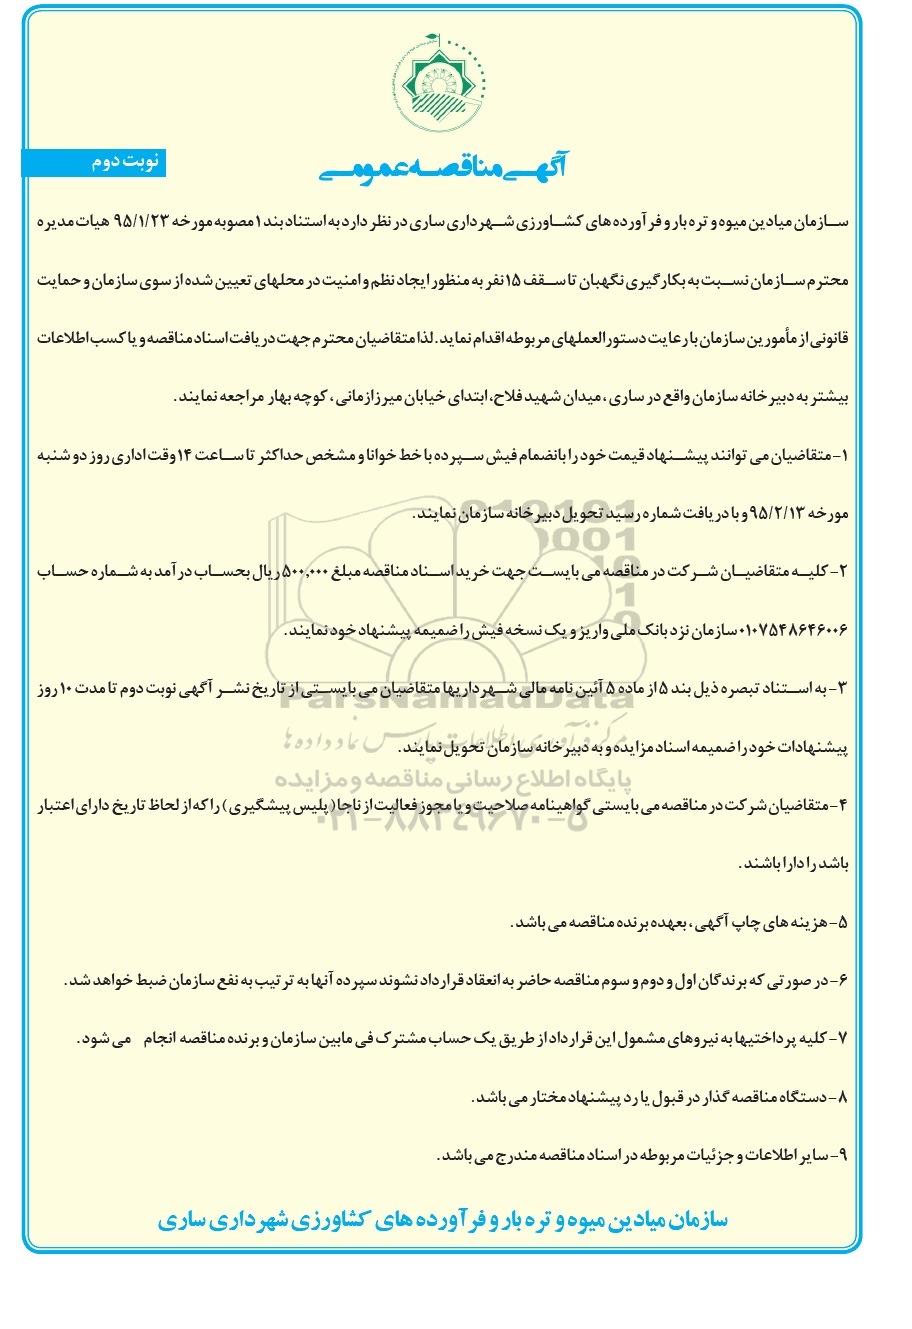 آگهی مناقصه عمومی
نوبت دوم
سازمان میادین میوه و تره بار و فرآورده های کشاورزی شهرداری ساری در نظر دارد به استناد بند ۱ مصوبه مورخه ۹۵/۱/۲۳ هیات مدیره
محترم سازمان نسبت به بکارگیری نگهبان تا سقف ۱۵ نفر به منظور ایجاد نظم و امنیت در محلهای تعیین شده از سوی سازمان و حمایت
قانونی از مأمورین سازمان با رعایت دستورالعملهای مربوطه اقدام نماید. لذا متقاضیان محترم جهت دریافت اسناد مناقصه و یا کسب اطلاعات
بیشتر به دبیرخانه سازمان واقع در ساری ، میدان شهید فلاح، ابتدای خیابان میرزازمانی ، کوچه بهار مراجعه نمایند.
۱- متقاضیان می توانند پیشنهاد قیمت خود را بانضمام فیش سپرده با خط خوانا و مشخص حداکثر تا ساعت ۱۴ وقت اداری روز دو شنبه
مورخه ۹۵/۲/۱۳ و با دریافت شماره رسید تحویل دبیرخانه سازمان نمایند.
۲- کلیه متقاضیان شرکت در مناقصه می بایست جهت خرید اسناد مناقصه مبلغ ۵۰۰,۰۰۰ ریال بحساب درآمد به شماره حساب
۰۱۰۷۵۴۸۶۴۶۰۰۶ سازمان نزد بانک ملی واریز و یک نسخه فیش را ضمیمه پیشنهاد خود نمایند.
۳- به استناد تبصره ذیل بند ۵ از ماده ۵ آئین نامه مالی شهرداریها متقاضیان می بایستی از تاریخ نشر آگهی نوبت دوم تا مدت ۱۰ روز
ParsNamadData
پیشنهادات خود را ضمیمه اسناد مزایده و به دبیرخانه سازمان تحویل نمایند.
مرکز فرآوری اطلاعات پارس نماد داده ها
پایگاه اطلاع رسانی مناقصه و مزایده
۴- متقاضیان شرکت در مناقصه می بایستی گواهینامه صلاحیت و یا مجوز فعالیت از ناجا ( پلیس پیشگیری ) را که از لحاظ تاریخ دارای اعتبار
۰۲۱-۸۸۳۴۹۶۷۰-۵
باشد را دارا باشند .
۵- هزینه های چاپ آگهی ، بعهده برنده مناقصه می باشد.
۶- در صورتی که برندگان اول و دوم و سوم مناقصه حاضر به انعقاد قرارداد نشوند سپرده آنها به ترتیب به نفع سازمان ضبط خواهد شد.
۷- کلیه پرداختیها به نیروهای مشمول این قرارداد از طریق یک حساب مشترک فی مابین سازمان و برنده مناقصه انجام می شود.
۸- دستگاه مناقصه گذار در قبول یا رد پیشنهاد مختار می باشد.
۹- سایر اطلاعات و جزئیات مربوطه در اسناد مناقصه مندرج می باشد.
سازمان میادین میوه و تره بار و فرآورده های کشاورزی شهرداری ساری